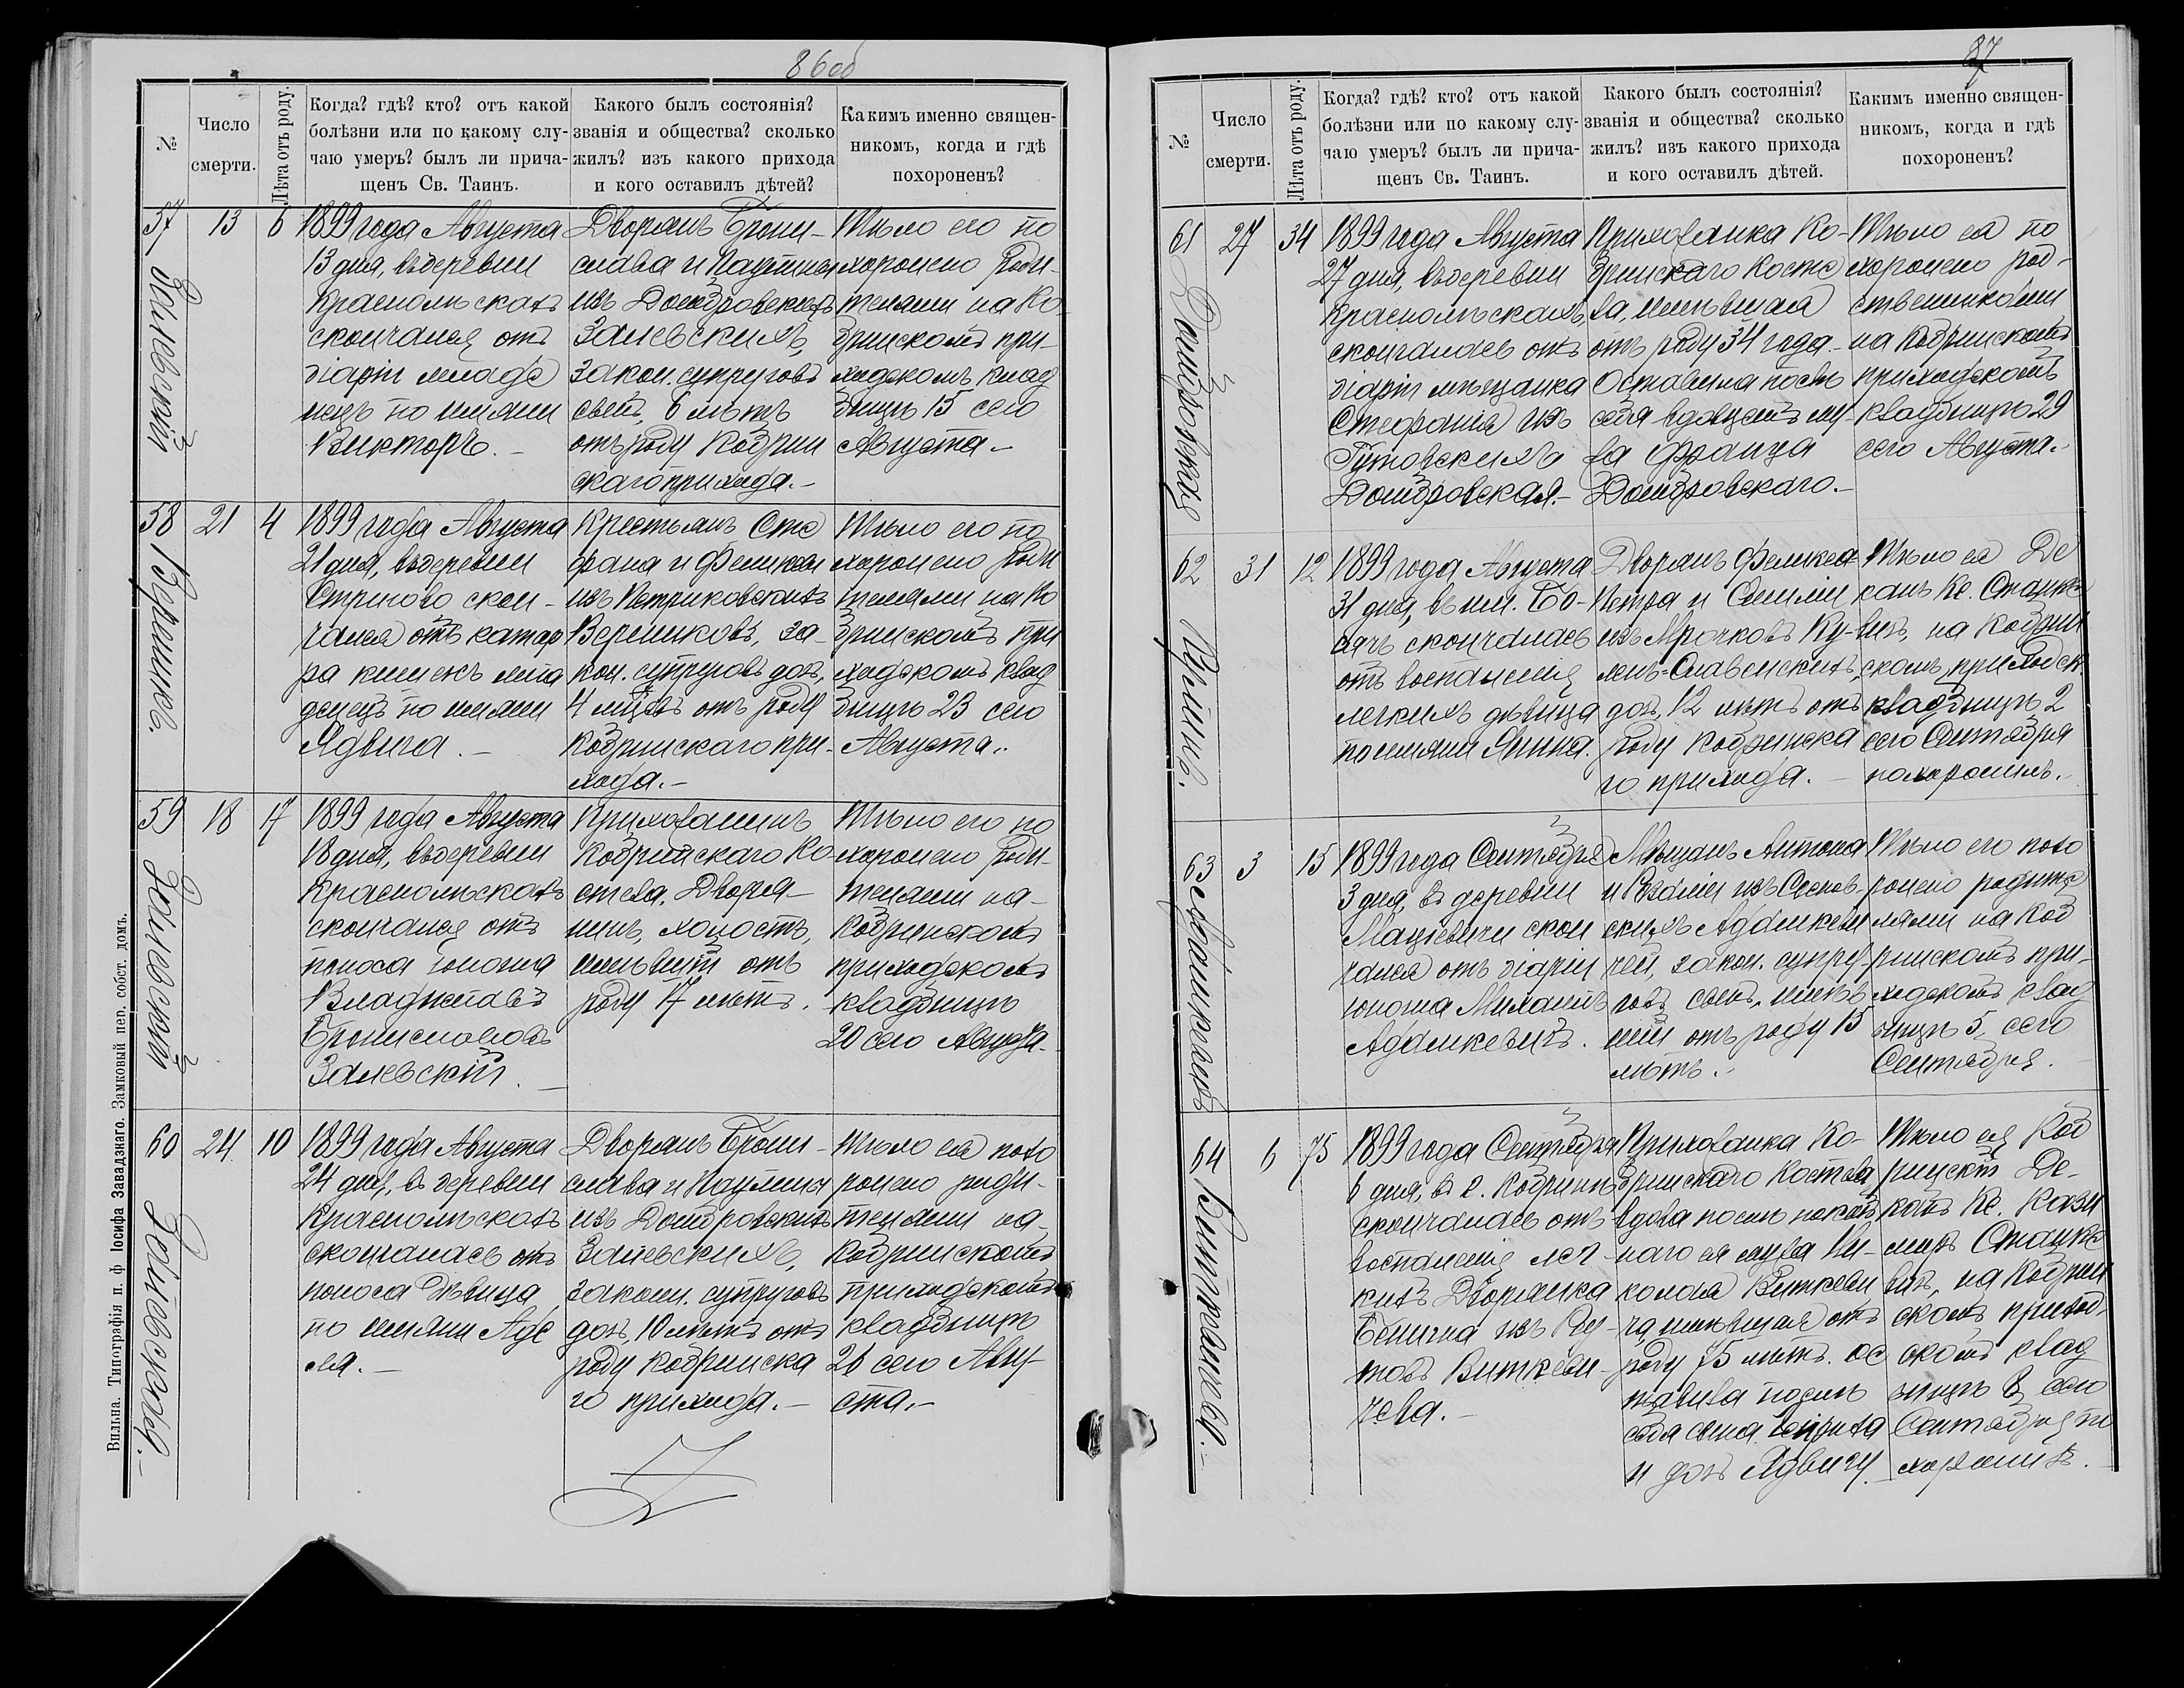 86об
№
Число
смерти.
Лѣта отъ роду.
Когда? гдѣ? кто? отъ какой
болѣзни или по какому слу-
чаю умеръ? былъ ли прича-
щенъ Св. Таинъ.
Какого былъ состоянія?
званія и общества? сколько
жилъ? изъ какого прихода
и кого оставилъ дѣтей?
Какимъ именно священ-
никомъ, когда и гдѣ
похороненъ?
57
Залевскій
13
6
1899 года Августа
13 дня, въ деревни
Краснольскахъ
скончался отъ
діаріи младе
нецъ по имяни
Викторъ. -
Дворянъ Брони-
слава и Паулины
изъ Домбровскихъ
Залевскихъ,
закон. супруговъ
сынъ, 6 лѣтъ
отъ роду Кобрин
скаго прихода. -
Тѣло его по
хоронено роди-
телями на Ко
бринскомъ при-
ходскомъ клад
бищѣ 15 сего
Августа. -
58
Веремикъ.
21
4
1899 года Августа
21 дня, въ деревни
Стригово скон-
чался отъ катар
ра кишекъ мла
денецъ по имяни
Ядвига. -
Крестьянъ Сте
фана и Феликсы
изъ Петриковскихъ
Веремиковъ, за-
кон. супруговъ дочь,
4 мѣсяц. отъ роду
Кобринскаго при-
хода. -
Тѣло его по
хоронено роди
телями на Ко
бринскомъ при
ходскомъ клад
бищѣ 23 сего
Августа.
59
Залевскій
18
17
1899 года Августа
18 дня, въ деревни
Краснольскахъ
скончался отъ
поноса юноша
Владиславъ
Брониславовъ
Залевскій. -
Прихожанинъ
Кобринскаго Ко-
стела. Дворя-
нинъ, холостъ,
имѣвшій отъ
роду 17 лѣтъ.
Тѣло его по
хоронено роди-
телями на-
Кобринскомъ
приходскомъ
кладбищѣ
20 сего Августа.
60
Залевская. -
24
10
1899 года Августа
24 дня, въ деревни
Краснольскахъ
скончалась отъ
поноса дѣвица
по имяни Аде
ля. -
Дворянъ Брони-
слава и Паулины
изъ Домбровскихъ
Залевскихъ,
законн. супруговъ
дочь, 10 лѣтъ отъ
роду Кобринска
го прихода. -
Тѣло ея похо
ронено роди-
телями на-
Кобринскомъ
приходскомъ
кладбищѣ
26 сего Авгу-
ста. -
Вильна. Типографія п. ф Іосифа Завадзкаго. Замковый пер. собст. домъ.
87
№
Число
смерти.
Лѣта отъ роду.
Когда? гдѣ? кто? отъ какой
болѣзни или по какому слу-
чаю умеръ? былъ ли прича-
щенъ Св. Таинъ.
Какого былъ состоянія?
званія и общества? сколько
жилъ? изъ какого прихода
и кого оставилъ дѣтей.
Какимъ именно священ-
никомъ, когда и гдѣ
похороненъ?
61
Домбровская
27
34
1899 года Августа
27 дня, въ деревни
Краснольскахъ,
скончалась отъ
діаріи мѣщанка
Стефанія изъ
Гутовскихъ
Домбровская. -
Прихожанка Ко-
бринскаго Косте
ла, имѣвшая
отъ роду 34 года.
Оставила послѣ
себя вдовцемъ му-
жа Франца
Домбровскаго. -
Тѣло ея по
хоронено род-
ственниками
на Кобринскомъ
приходскомъ
кладбищѣ 29
сего Августа.
62
31
12
1899 года Августа
31 дня, въ им. Бо-
скончалась
отъ воспаленія
легкихъ дѣвица
по имяни Янина.
Дворянъ Феликса
Петра и Емиліи
изъ Мрочковъ Ку-
дочь, 12 лѣтъ отъ
роду Кобринска
го прихода. -
Тѣло ея Де
канъ Кс. Станке
вичъ, на Кобрин
скомъ приходск
кладбищѣ 2
сего Сентября
похоронилъ.
63
Адамкевичъ
3
15
1899 года Сентября
3 дня, въ деревни
Мацкевичи скон
чался отъ діаріи
юноша Михаилъ
Адамкевичъ.
Мѣщанъ Антона
и Розаліи изъ Сосков-
скихъ Адамкеви
чей, закон. супру-
говъ сынъ, имѣв-
шій отъ роду 15
лѣтъ.
Тѣло его похо
ронено родите
лями на Коб
ринскомъ при-
ходскомъ клад
бищѣ 5, сего
Сентября.
64
Виткевичева. -
6
75
1899 года Сентября
6 дня, въ г. Кобринѣ
скончалась отъ
воспаленія лег-
кихъ Дворянка
Бенигна изъ Гу-
товъ Виткеви-
чева. -
Прихожанка Ко-
бринскаго Костела
вдова послѣ покой
наго ея мужа Ни-
колая Виткеви
ча, имѣвшая отъ
роду 75 лѣтъ. Ос
тавила послѣ
себя сына Генриха
и дочь Ядвигу.
Тѣло ея Коб
ринскій Де-
канъ Кс. Кази
миръ Станке
вичъ, на Кобрин
скомъ приход-
скомъ клад
бищѣ 8, сего
Сентября по
хоронилъ.